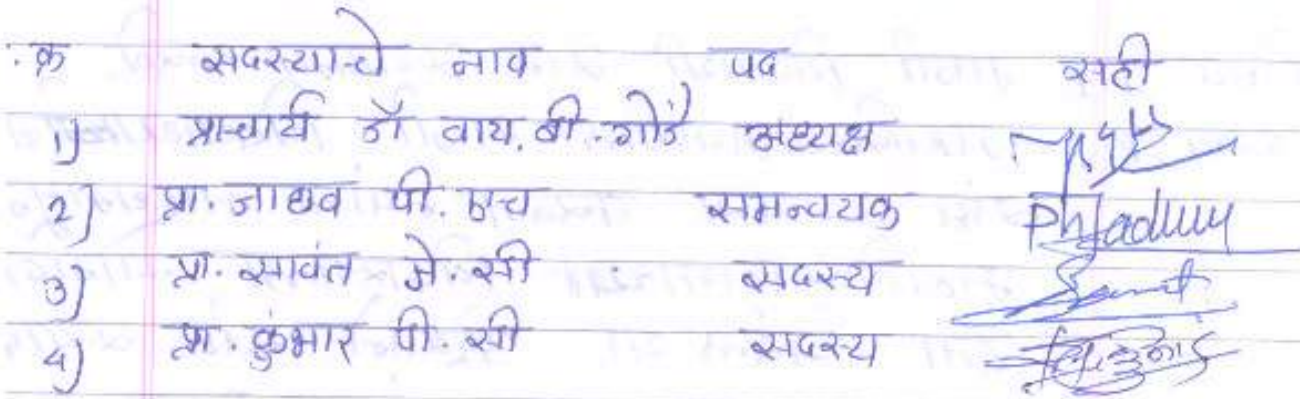 .क्र सदस्याचे नाव पद सही
1) प्राचार्य डॉ वाय. बी. गोंडे अध्यक्ष
2) प्रा. जाधव पी. एच समन्वयक PhJadhav
3) प्रा. सावंत जे. सी सदस्य
4) प्रा. कुंभार पी. सी सदस्य